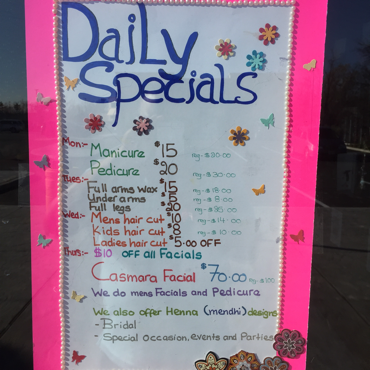 Daily
Specials
Mon:- Manicure $15 reg-$20.00
Pedicure $20 reg-$30.00
Tues:- Full arms wax $15 reg-$18.00
Under arms $5 reg-$8.00
Full legs $20 reg-$35.00
Wed:- Mens hair cut $10 reg-$14.00
Kids hair cut $8 reg-$10.00
Ladies hair cut $5.00 OFF
Thurs:- $10 OFF all Facials
Casmara Facial $70.00 reg-$100
We do mens Facials and Pedicura
We also offer Henna (mendhi) designs
- Bridal
- Special Occasion, events and Parties